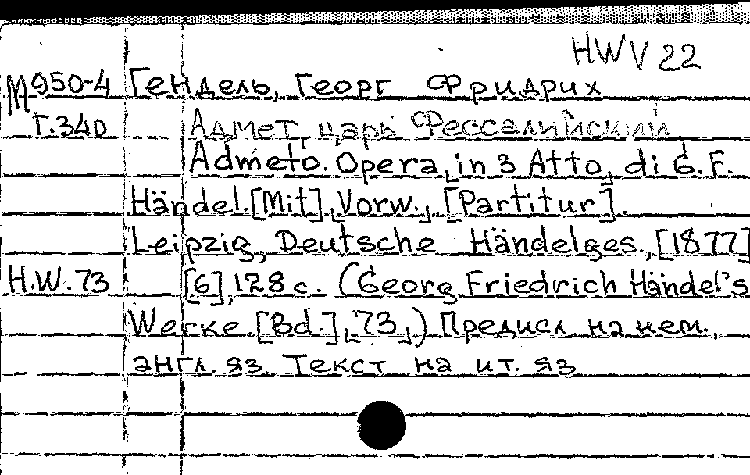 HWV 22
М950-4 Гендель, Георг Фридрих
Г.340 Адмет, царь Фессалийский
Admeto. Opera, in 3 Atto, di G. F.
Händel. [Mit] Vorw., [Partitur].
Leipzig, Deutsche Händelges., [1877]
H.W. 73 [6], 128 с. (Georg Friedrich Händel's
Werke. [Bd.], 73,) Предисл. на нем.,
англ. яз. Текст на ит. яз.